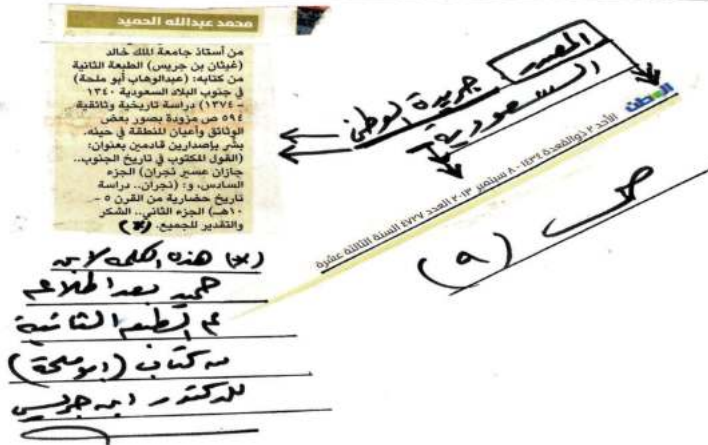 محمد عبدالله الحميد
من أستاذ جامعة الملك خالد
(غيثان بن جريس) الطبعة الثانية
من كتابه: (عبدالوهاب أبو ملحة)
في جنوب البلاد السعودية ١٣٤٠
– ١٣٧٤) دراسة تاريخية وثائقية
٥٩٤ ص مزودة بصور بعض
الوثائق وأعيان المنطقة في حينه.
بشّر بإصدارين قادمين بعنوان:
(القول المكتوب في تاريخ الجنوب..
جازان عسير نجران) الجزء
السادس، و: (نجران.. دراسة
تاريخ حضارية من القرن ٥ –
١٠هـ) الجزء الثاني.. الشكر
والتقدير للجميع. (*)
المصدر
جريدة الوطن
السعودية
الوطن
الأحد ٢ ذوالقعدة ١٤٣٤ - ٨ سبتمبر ٢٠١٣ العدد ٤٧٢٧ السنة الثالثة عشرة
ص (٩)
(*) هذه الكلمة لابن
حميد بعد اطلاعه
على الطبعة الثانية
من كتاب (ابو ملحة)
للدكتور ابن جريس